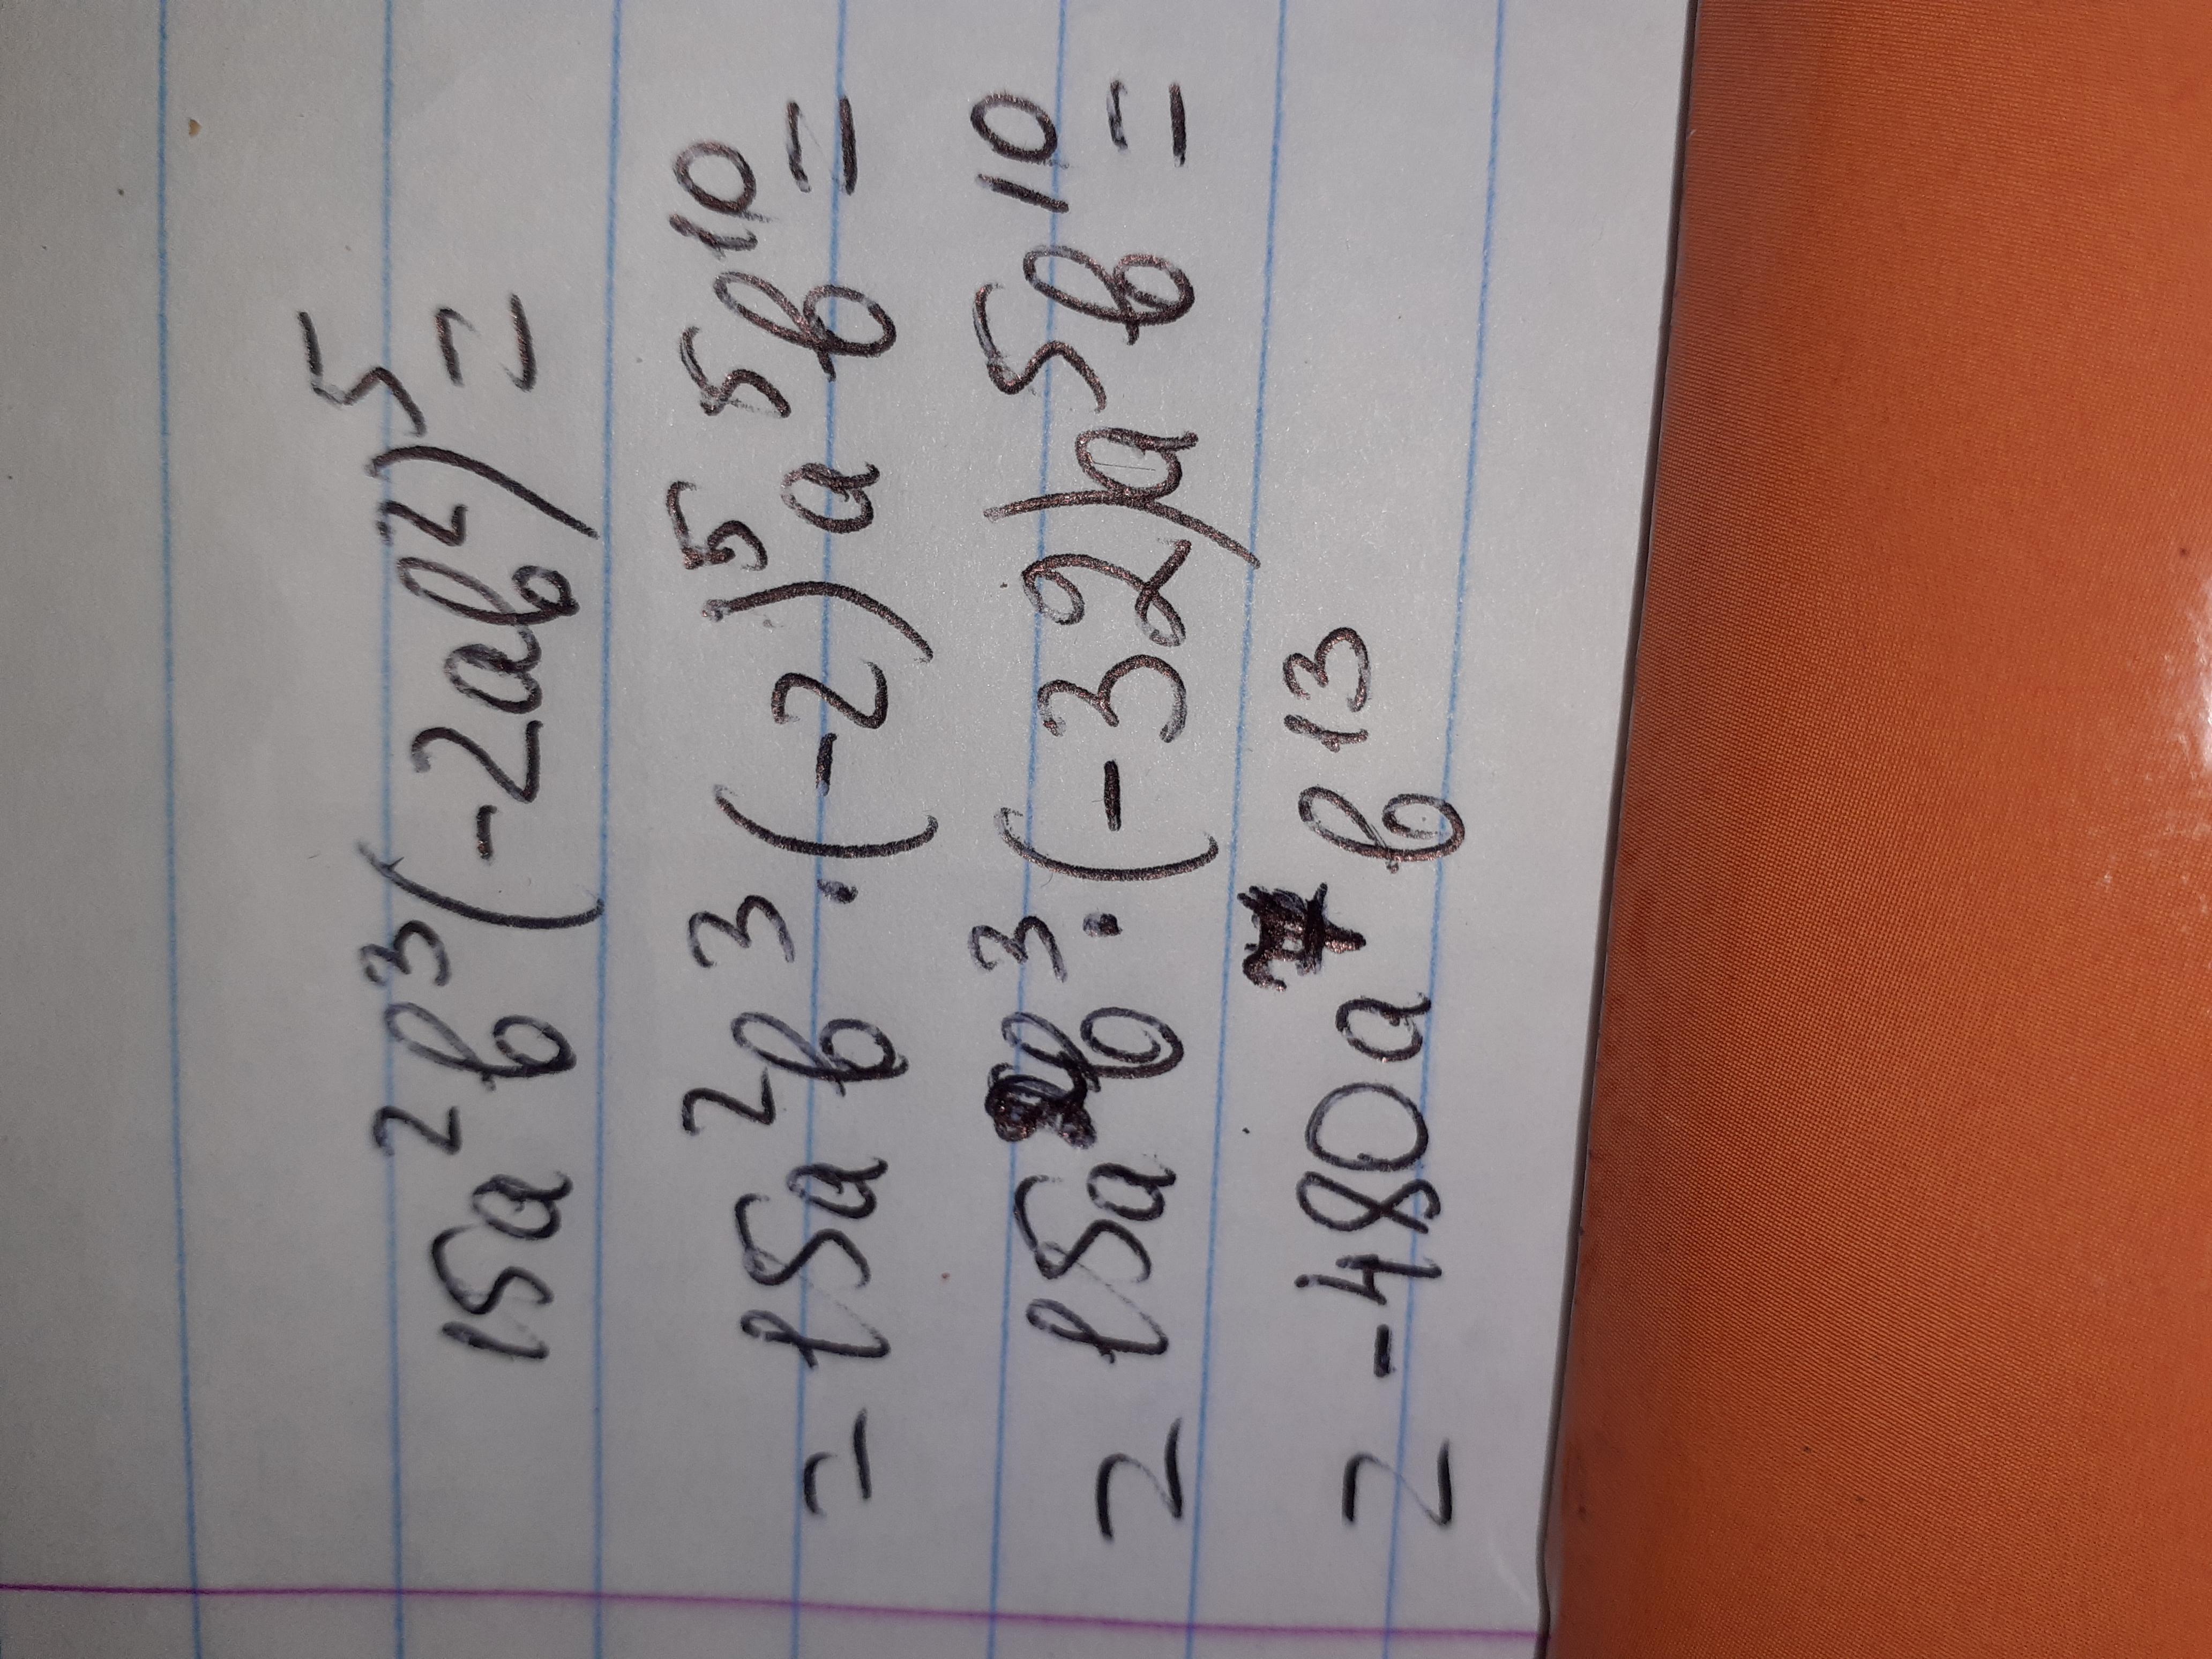 15a²b³(-2ab²)⁵=
= 15a²b³·(-2)⁵a⁵b¹⁰=
= 15a²b³·(-32)a⁵b¹⁰=
= -480a⁷b¹³